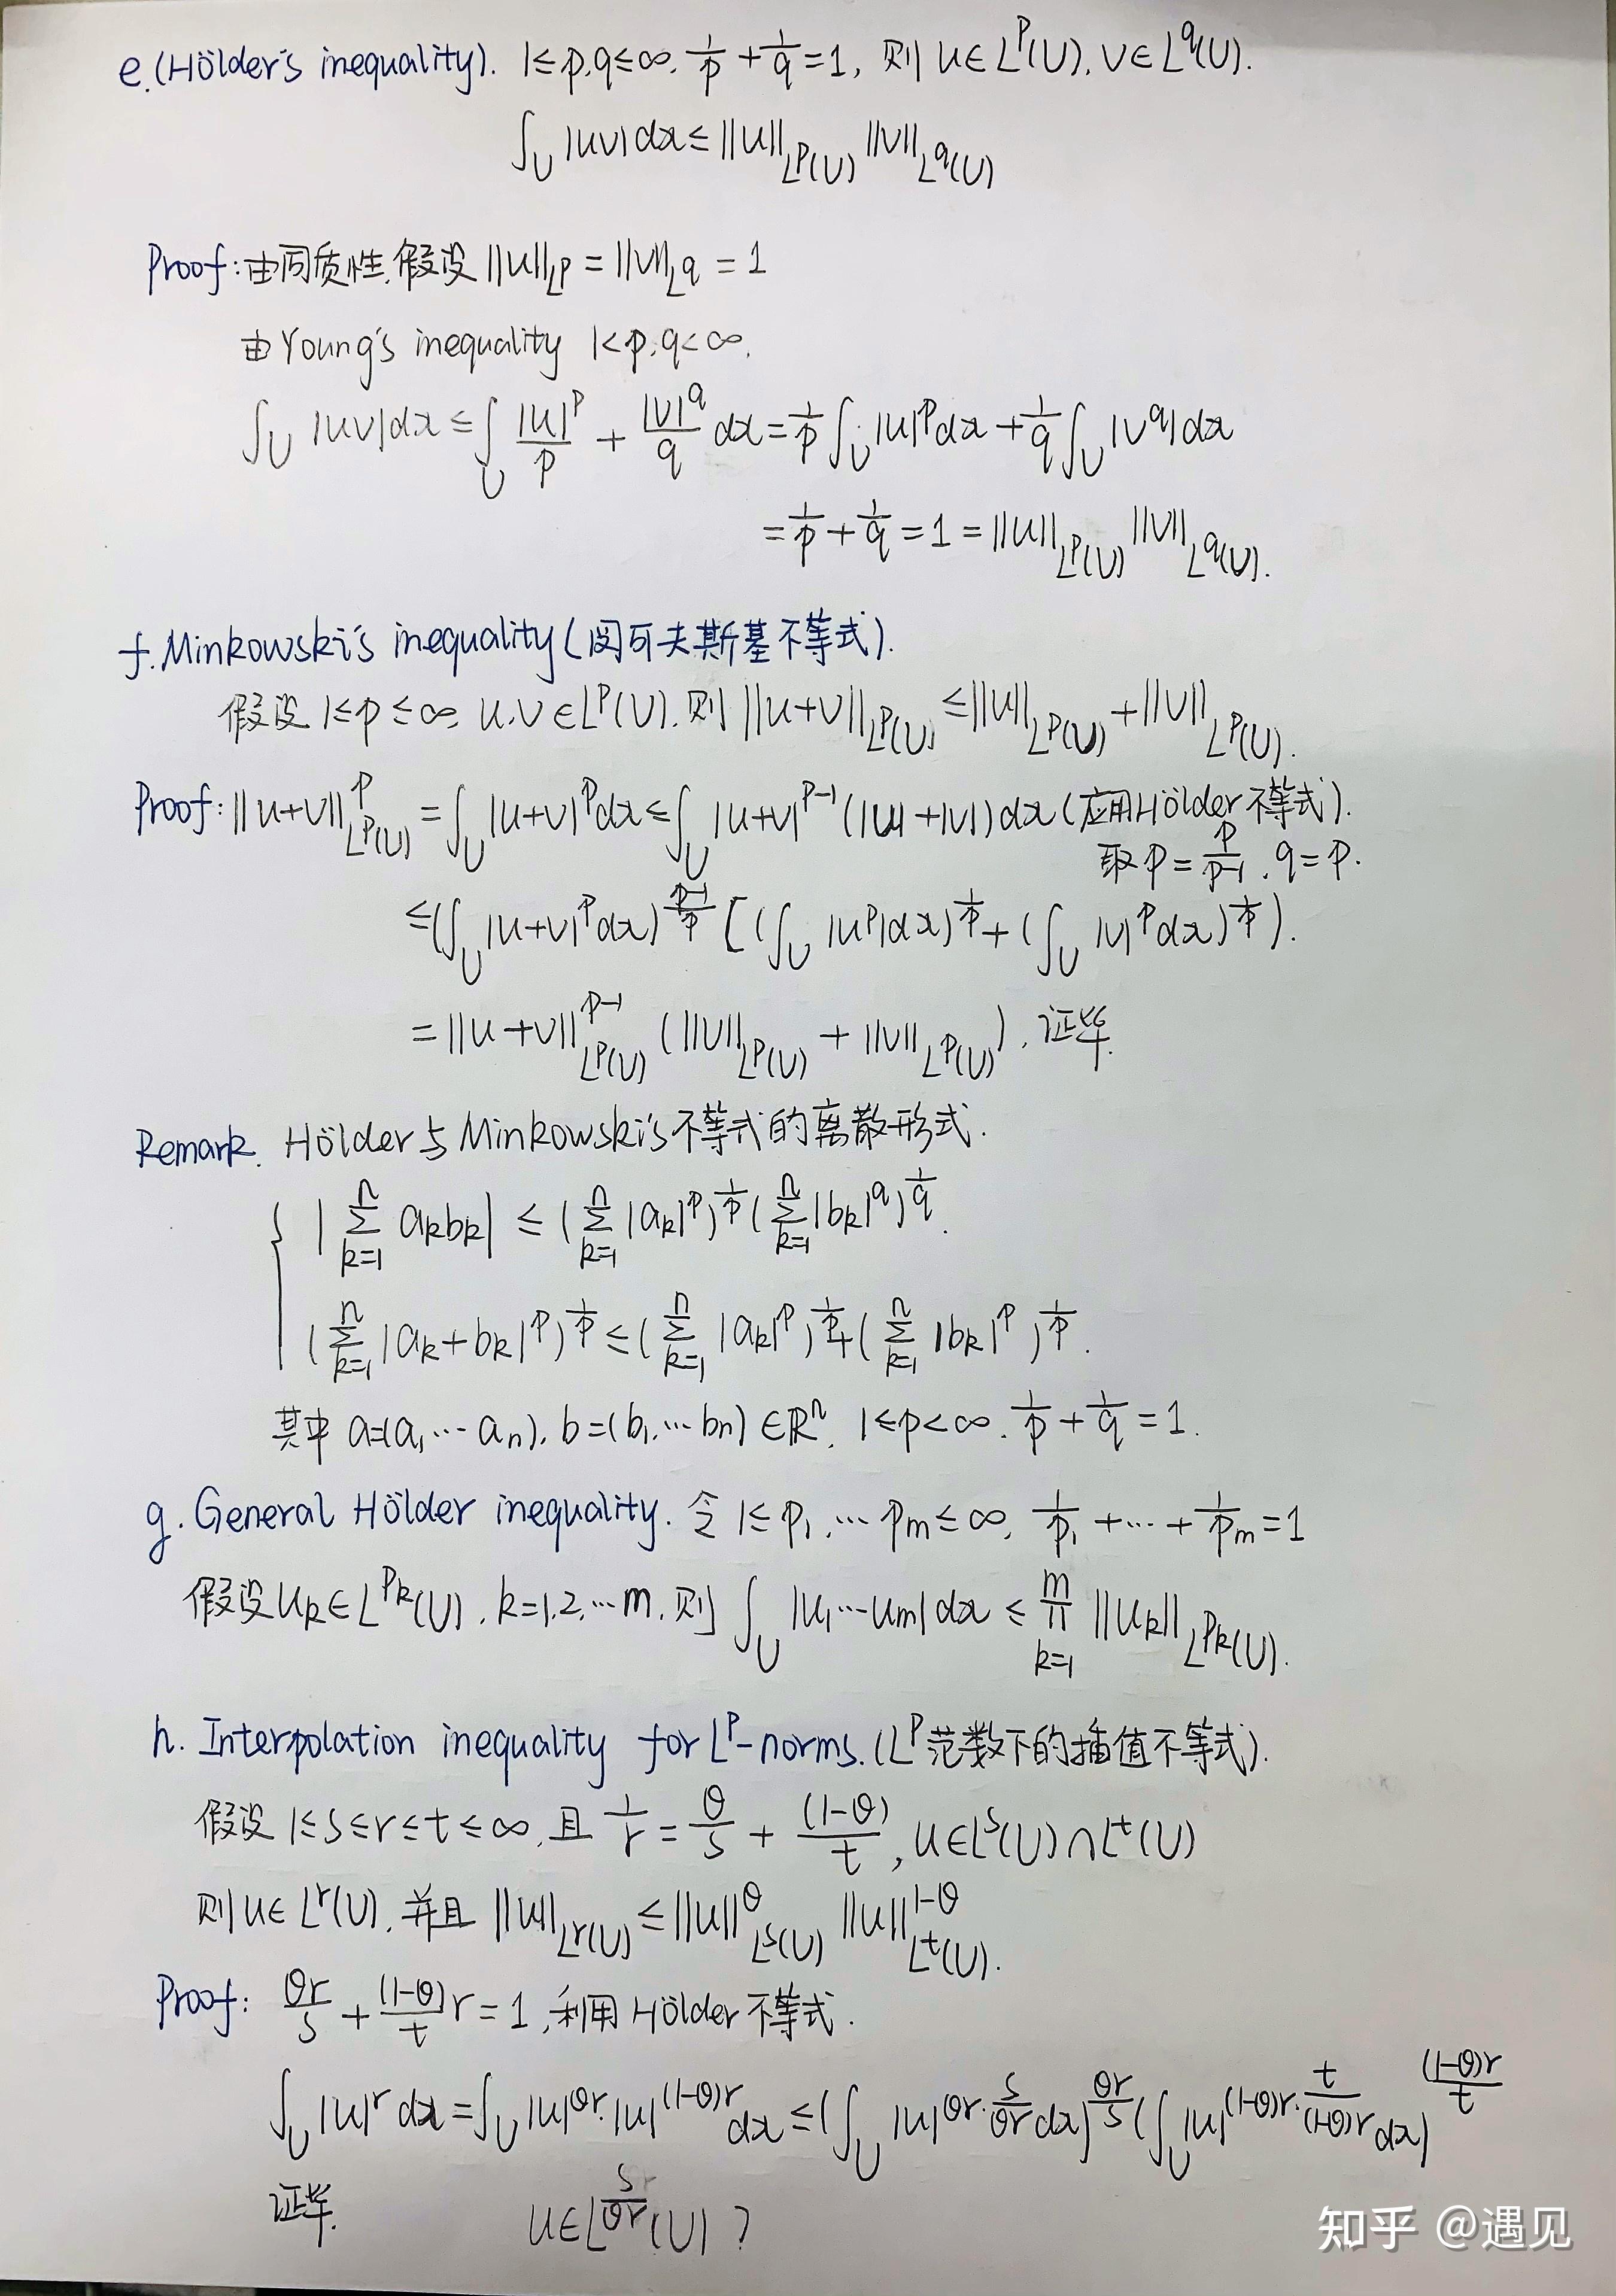 e.(Hölder's inequality). 1≤p,q≤∞, 1/p + 1/q = 1, 则 u∈L^p(U), v∈L^q(U).
∫_U |uv|dx ≤ ||u||_{L^p(U)} ||v||_{L^q(U)}
Proof: 由同质性, 假设 ||u||_{L^p} = ||v||_{L^q} = 1
由Young's inequality 1<p,q<∞,
∫_U |uv|dx ≤ ∫_U |u|^p/p + |v|^q/q dx = 1/p ∫_U |u|^p dx + 1/q ∫_U |v^q|dx
= 1/p + 1/q = 1 = ||u||_{L^p(U)} ||v||_{L^q(U)}.
f. Minkowski's inequality (闵可夫斯基不等式).
假设 1≤p≤∞, u,v∈L^p(U), 则 ||u+v||_{L^p(U)} ≤ ||u||_{L^p(U)} + ||v||_{L^p(U)}.
Proof: ||u+v||^p_{L^p(U)} = ∫_U |u+v|^p dx ≤ ∫_U |u+v|^{p-1} (|u|+|v|) dx (应用Hölder不等式).
取 p = p/(p-1), q = p.
≤ (∫_U |u+v|^p dx)^{(p-1)/p} [(∫_U |u^p|dx)^{1/p} + (∫_U |v|^p dx)^{1/p}).
= ||u+v||^{p-1}_{L^p(U)} (||U||_{L^p(U)} + ||v||_{L^p(U)}), 证毕.
Remark. Hölder与Minkowski's不等式的离散形式.
{ |∑_{k=1}^n a_k b_k| ≤ (∑_{k=1}^n |a_k|^p)^{1/p} (∑_{k=1}^n |b_k|^q)^{1/q}.
(∑_{k=1}^n |a_k+b_k|^p)^{1/p} ≤ (∑_{k=1}^n |a_k|^p)^{1/p} + (∑_{k=1}^n |b_k|^p)^{1/p}.
其中 a=(a_1…a_n), b=(b_1,…b_n)∈ℝ^n, 1≤p<∞. 1/p + 1/q = 1.
g. General Hölder inequality. 令 1≤p_1,…p_m≤∞, 1/p_1 + … + 1/p_m = 1
假设 u_k∈L^{p_k}(U), k=1,2,…m, 则 ∫_U |u_1…u_m|dx ≤ ∏_{k=1}^m ||u_k||_{L^{p_k}(U)}.
h. Interpolation inequality for L^p-norms. (L^p范数下的插值不等式).
假设 1≤s≤r≤t≤∞, 且 1/r = θ/s + (1-θ)/t, u∈L^s(U)∩L^t(U)
则 u∈L^r(U), 并且 ||u||_{L^r(U)} ≤ ||u||^θ_{L^s(U)} ||u||^{1-θ}_{L^t(U)}.
Proof: θr/s + (1-θ)/t r = 1, 利用Hölder不等式.
∫_U |u|^r dx = ∫_U |u|^{θr}·|u|^{(1-θ)r} dx ≤ (∫_U |u|^{θr·s/(θr)} dx)^{θr/s} (∫_U |u|^{(1-θ)r·t/((1-θ)r)} dx)^{(1-θ)r/t}
证毕. u∈L^{s/(θr)}(U)?
知乎 @遇见